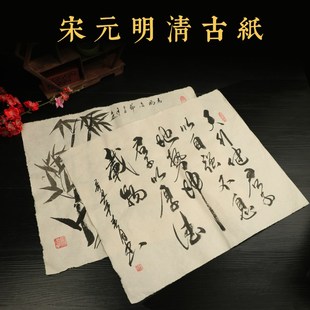 宋元明清古紙
天行健君子
以自強不息
地勢坤
君子以厚德
載物